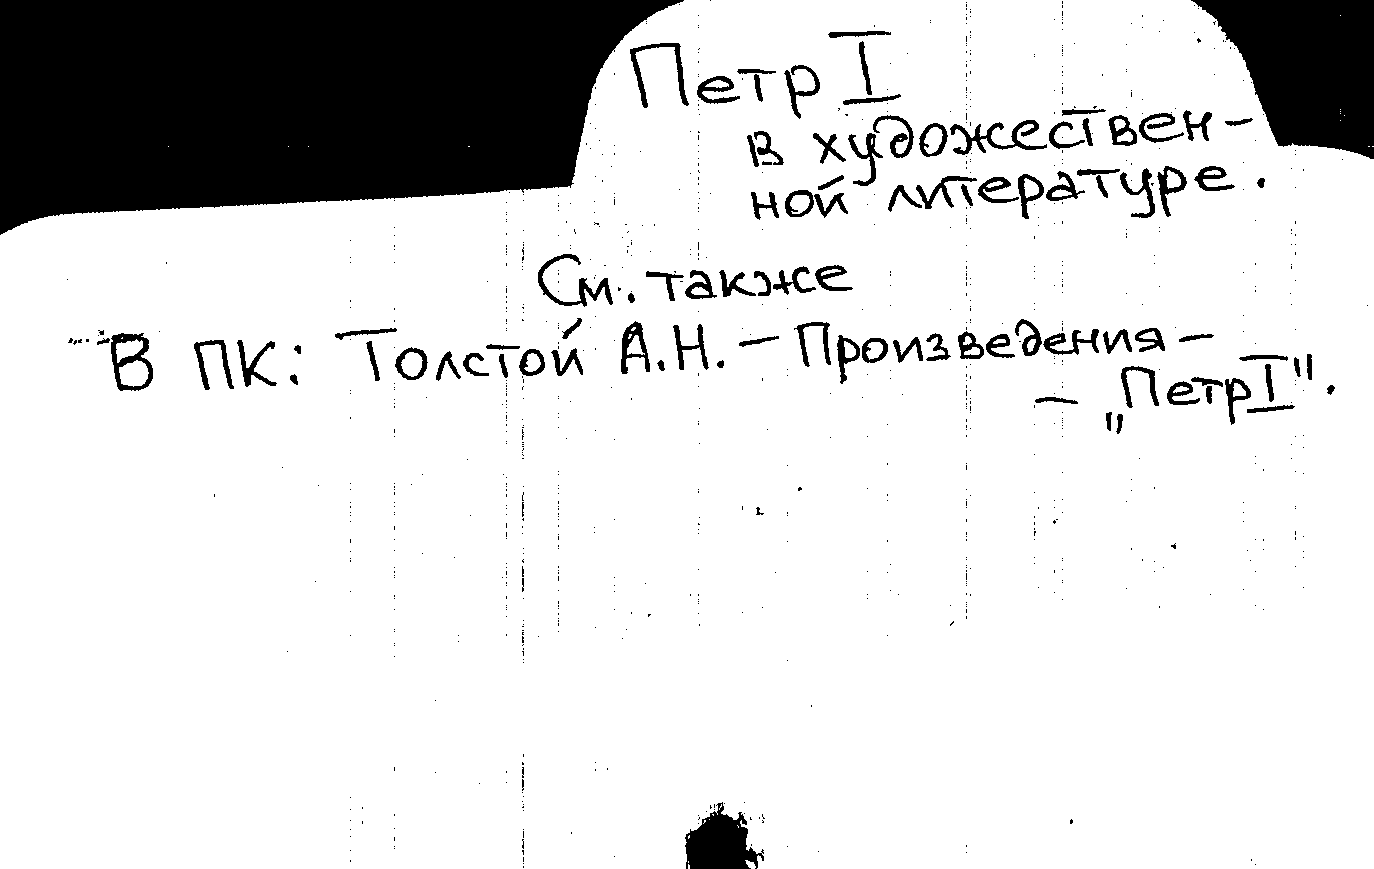 Петр I
в художествен-
ной литературе.
См. также
В ПК: Толстой А.Н. – Произведения –
– „Петр I".